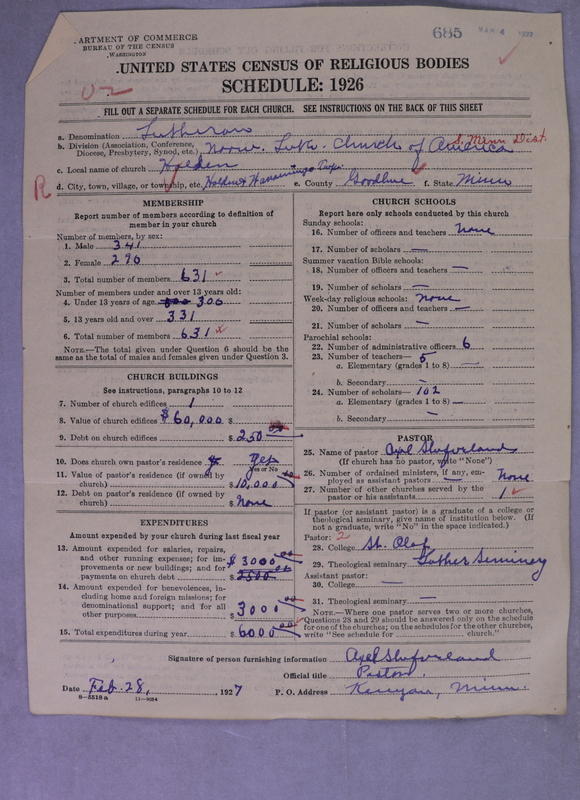 ARTMENT OF COMMERCE
BUREAU OF THE CENSUS
WASHINGTON
685
MAR 4 1927
UNITED STATES CENSUS OF RELIGIOUS BODIES
SCHEDULE: 1926
FILL OUT A SEPARATE SCHEDULE FOR EACH CHURCH. SEE INSTRUCTIONS ON THE BACK OF THIS SHEET
a. Denomination Lutheran
b. Division (Association, Conference, Diocese, Presbytery, Synod, etc.) Norw. Luth. Church of America S. Minn Dist.
c. Local name of church Holden
R
d. City, town, village, or township, etc. Holden & Wanamingo Twps. e. County Goodhue f. State Minn
MEMBERSHIP
Report number of members according to definition of
member in your church
Number of members, by sex:
1. Male 341
2. Female 290
3. Total number of members 631
Number of members under and over 13 years old:
4. Under 13 years of age 300
5. 13 years old and over 331
6. Total number of members 631
NOTE.—The total given under Question 6 should be the
same as the total of males and females given under Question 3.
CHURCH BUILDINGS
See instructions, paragraphs 10 to 12
7. Number of church edifices 1
8. Value of church edifices $60,000 $
9. Debt on church edifices $ 250
10. Does church own pastor's residence? Yes
Yes or No
11. Value of pastor's residence (if owned by
church) $ 10,000
12. Debt on pastor's residence (if owned by
church) $ None
EXPENDITURES
Amount expended by your church during last fiscal year
13. Amount expended for salaries, repairs,
and other running expenses; for im-
provements or new buildings; and for
payments on church debt $ 3000 $ 2500
14. Amount expended for benevolences, in-
cluding home and foreign missions; for
denominational support; and for all
other purposes $ 3000
15. Total expenditures during year $ 6000
CHURCH SCHOOLS
Report here only schools conducted by this church
Sunday schools:
16. Number of officers and teachers None
17. Number of scholars —
Summer vacation Bible schools:
18. Number of officers and teachers —
19. Number of scholars —
Week-day religious schools: None
20. Number of officers and teachers —
21. Number of scholars —
Parochial schools:
22. Number of administrative officers 6
23. Number of teachers— 5
a. Elementary (grades 1 to 8) —
b. Secondary —
24. Number of scholars— 102
a. Elementary (grades 1 to 8) —
b. Secondary —
PASTOR
25. Name of pastor Axel
(If church has no pastor, write "None")
26. Number of ordained ministers, if any, em-
ployed as assistant pastors — None
27. Number of other churches served by the
pastor or his assistants 1
If pastor (or assistant pastor) is a graduate of a college or
theological seminary, give name of institution below. (If
not a graduate, write "No" in the space indicated.)
Pastor: 2
28. College St. Olaf
29. Theological seminary Luther Seminary
Assistant pastor:
30. College —
31. Theological seminary —
NOTE.—Where one pastor serves two or more churches,
Questions 28 and 29 should be answered only on the schedule
for one of the churches; on the schedules for the other churches,
write "See schedule for church."
Signature of person furnishing information Axel
Official title Pastor
Date Feb. 28, 1927 P. O. Address Kenyon, Minn.
8—5518 a 11—9984